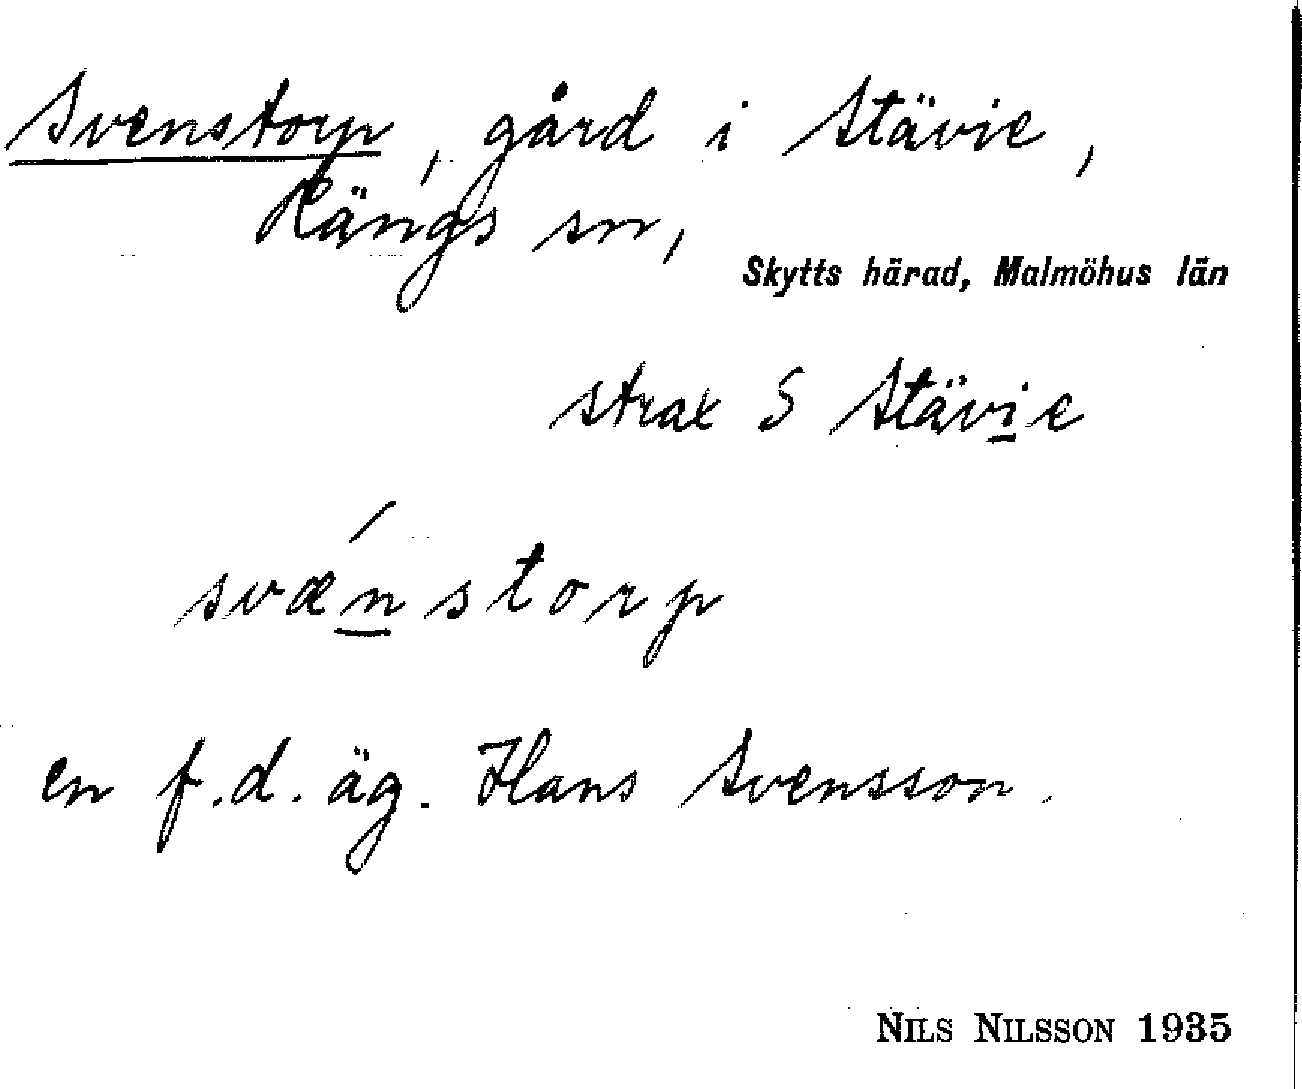 Svenstorp, gård i Stävie,
Rängs sn,
Skytts härad, Malmöhus län
strax S Stävie
svænstorp
en f.d. äg. Hans Svensson.
NILS NILSSON 1935